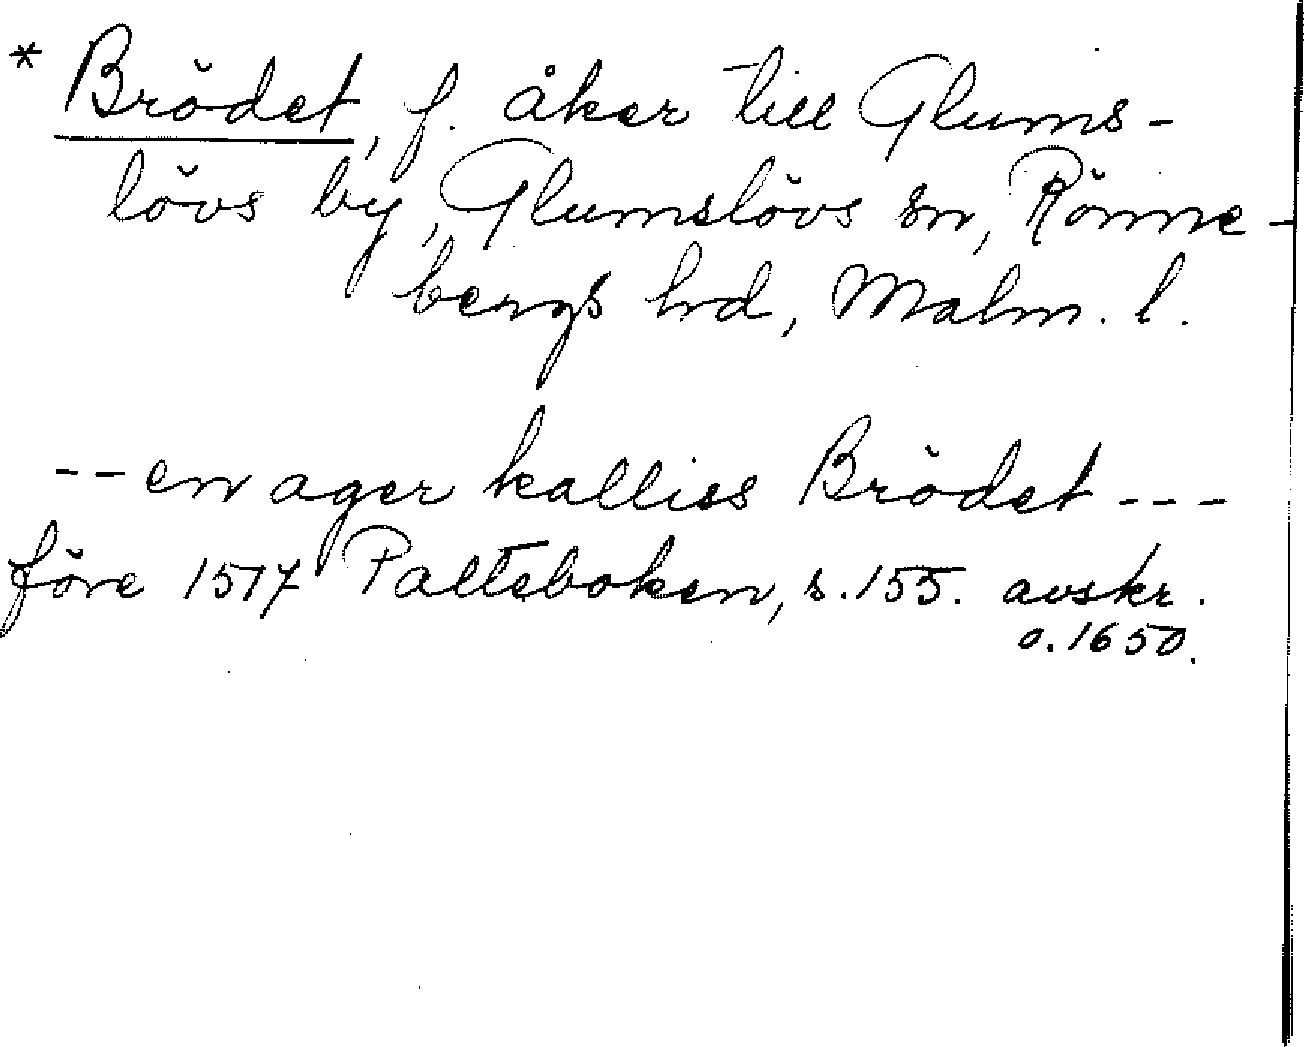 * Brödet, f. åker till Glums-
lövs by, Glumslövs sn, Rönne-
bergs hd, Malm. l.
-- en ager kalliss Brödet ---
före 1517 Palteboken, s. 155. avskr.
o. 1650.